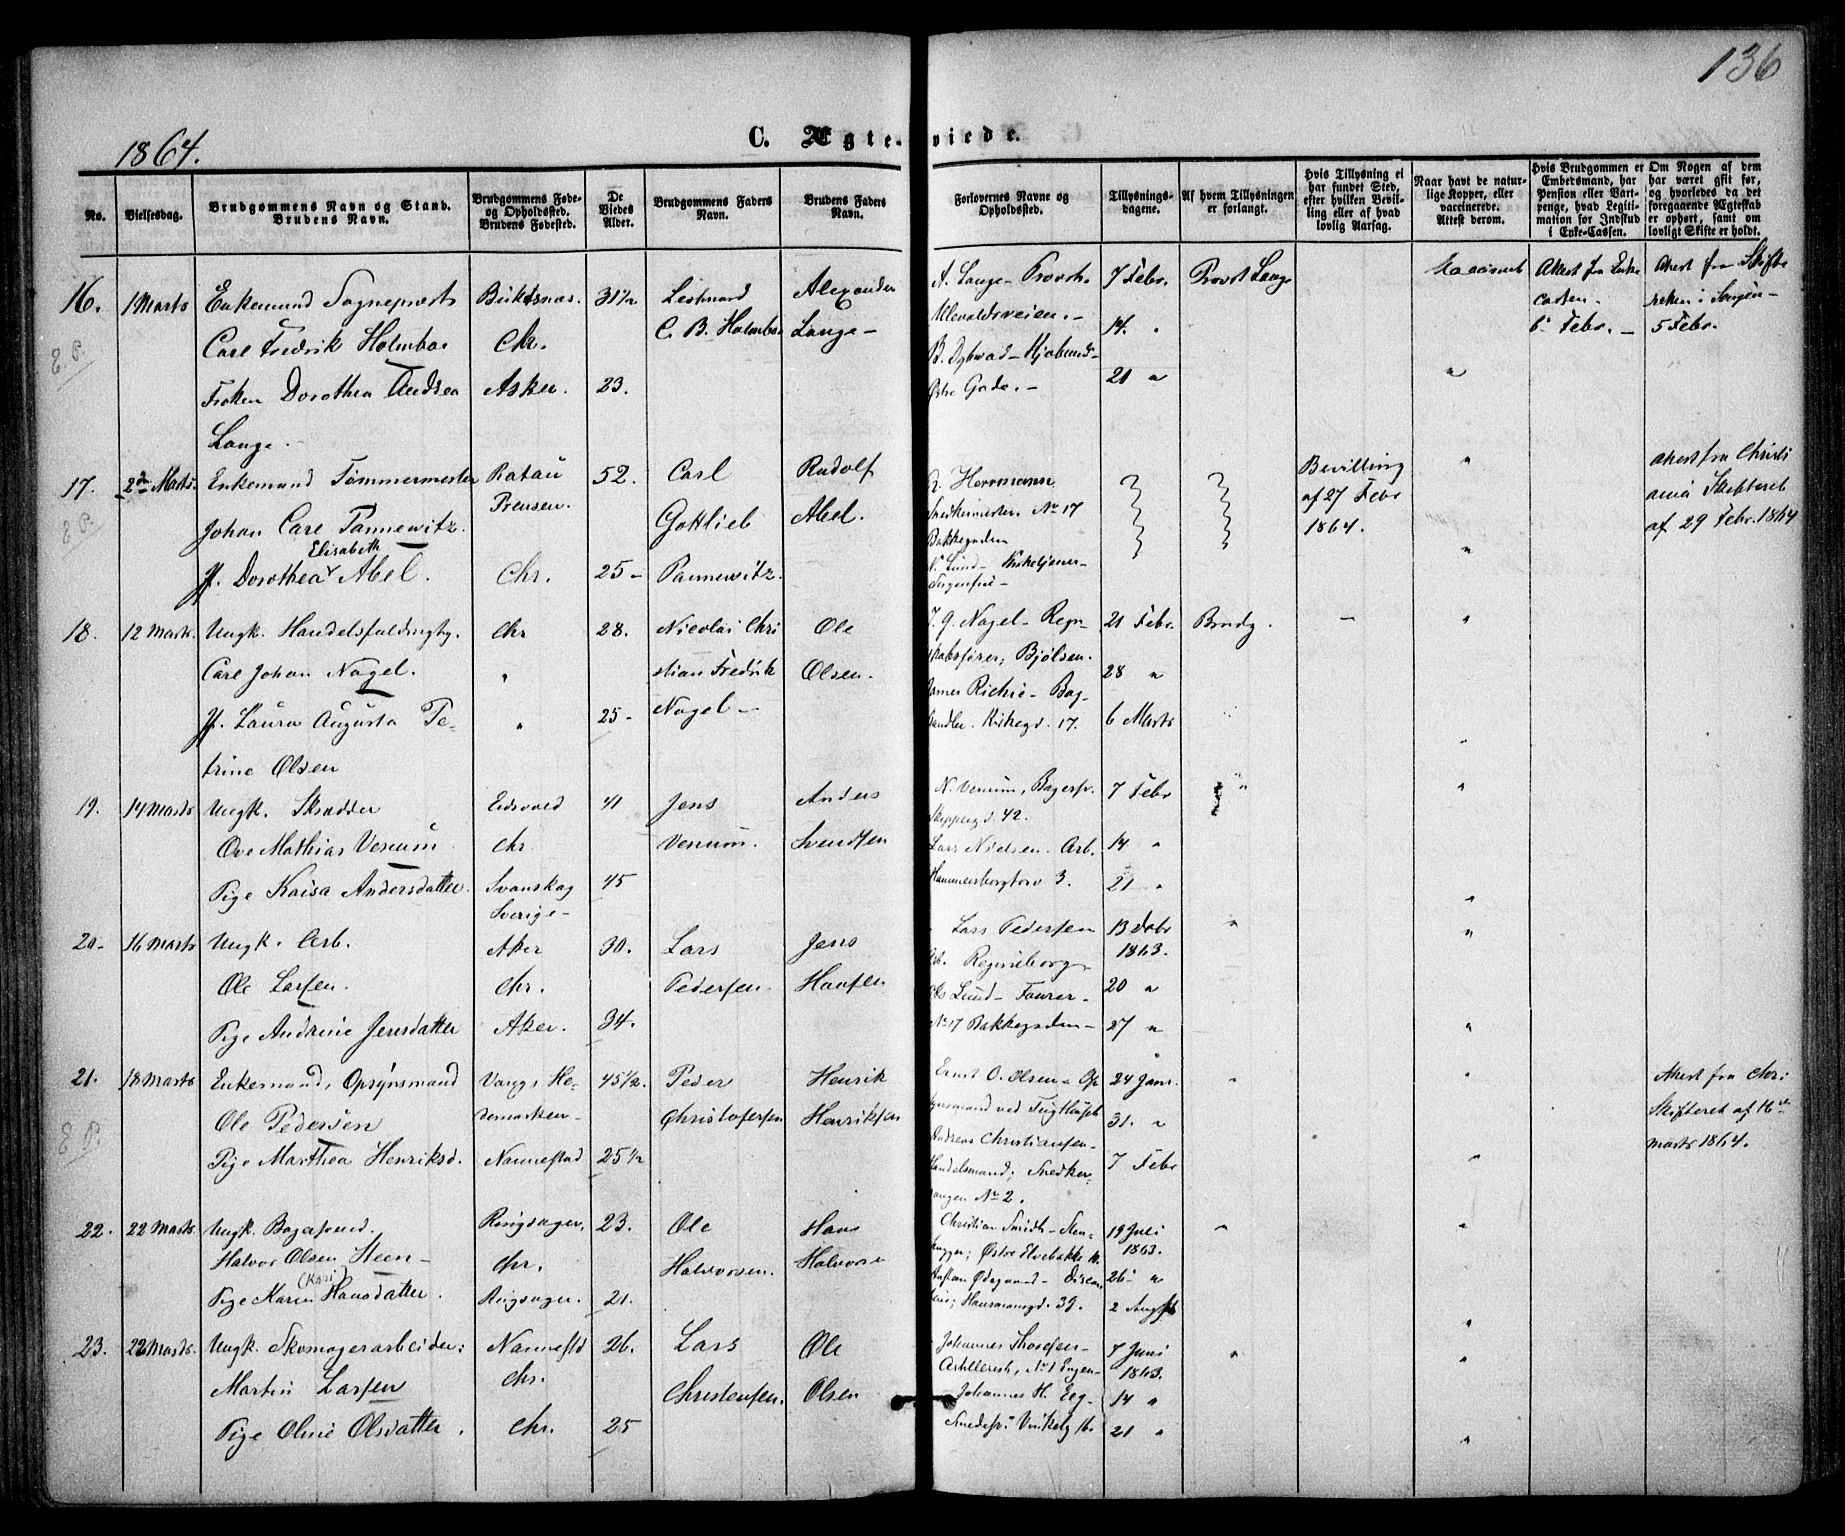 136
1864.
C. Ægteviede.
No.
Vielsesdag.
Brudgommens Navn og Stand.
Brudens Navn.
Brudgommens Føde-
og Opholdssted.
Brudens Fødested.
De
Viedes
Alder.
Brudgommens Faders
Navn.
Brudens Faders
Navn.
Forlovernes Navne og
Opholdssted.
Tillysnings-
dagene.
Af hvem Tillysningen
er forlangt.
Hvis Tillysning ei
har fundet Sted,
efter hvilken Bevil-
ling eller af hvad
lovlig Aarsag.
Naar havt de natur-
lige Kopper, eller
vaccinerede.
Attest derom.
Hvis Brudgommen er
Embedsmand, har
Pension eller Vart-
penge, hvad Legiti-
mation for Indskud
i Enke-Cassen.
Om Nogen af dem
har været gift før,
og hvorledes da det
foregaaende Ægteskab
er ophørt, samt om
lovligt Skifte er holdt.
16.
E P.
1 Marts
Enkemand Sognepræst
Carl Fredrik Holmboe
Frøken Dorothea Andrea
Lange -
Chr.
Asker.
31½
23.
C. B. Holmboe
Alexander
Lange -
A. Lange - Provst.
Ullevaldsveien. -
B. Dybwad - Kjøbmd -
Østre Gade. -
7 Febr.
14. "
21 "
Provst Lange
"
Attest fra Enke
cassen -
6 Febr. -
Attest fra Skifte
5 Febr.
17.
E P.
2den Marts.
Enkemand Tømmermester
Johan Carl Pannewitz.
Elisabeth
Jf. Dorothea Abel.
Preusen.
Chr.
52.
25 -
Carl
Gottlieb
Pannewitz.
Rudolf
Abel.
Herrmann
Snedkermester No 17
Bakkegaden
N. Lund - Kirketjener -
Bevilling
af 27 Febr
1864.
"
"
Attest fra Christi
ania Skifteret
af 29 Febr. 1864
18.
12 Marts.
Ungk. Handelsfuldmgtg.
Carl Johan Nagel.
Jf. Laura Augusta Pe-
trine Olsen
Chr
"
"
28.
25 -
Nicolai Chri
stian Fredrik
Nagel -
Ole
Olsen.
Nagel - Regn-
skabsfører, Bjølsen.
James Richie - Bog-
handler. Kirkegd. 17.
21 Febr.
28 "
6 Marts
Brudg.
-
"
"
19.
14 Marts
Ungk. Skrædder
Ove Mathias Venum
Pige Kaisa Andersdatter.
Eidsvold
Chr
Svanskog
Sverige -
41
45
Jens
Venum.
Anders
Svendsen
N. Venum, Bagersv.
Skipperg d. 42.
Lars Nielsen. Arb.
Hammersborgtorv 3.
7 Febr
14 "
21 "
"
"
"
20 -
16 Marts
Ungk. Arb.
Ole Larsen.
Pige Andrine Jensdatter
Aker
Chr.
Aker.
30.
34.
Lars
Pedersen.
Jens
Hansen
Lars Pedersen
Ols Lund - Fourer -
No 17 Bakkegaden -
13 Debr
1863.
20 "
27 "
"
"
"
21.
E P.
18 Marts
Enkemand, Opsynsmand
Ole Pedersen
Pige Marthea Henriksd.
Vangs He-
demarken -
Nannestad
45½.
25½
Peder
Christofersen
Henrik
Henriksen
Ernst O. Olsen - Op
synsmand ved Tugthuset
Andreas Christiansen -
Handelsmand, Snedker-
gangen No 2.
24 Janr.
31. "
7 Febr
"
"
"
Attest fra Chri
Skifteret af 16de
Marts 1864.
22.
22 Marts.
Ungk. Bagersvend.
Halvor Olsen Steen -
(Kari)
Pige Karen Hansdatter.
Ringsager.
Chr.
Ringsager.
23.
21.
Ole
Halvorsen.
Hans
Halvorse
Christian Smidt - Sten-
hugger; Østre Elvebakke
Hausmansgd. 39.
19 Juli
1863.
26 "
2 August
"
"
"
23.
22 Marts.
Ungk. Skomagerarbeider:
Martin Larsen
Pige Oline Olsdatter.
Nannestd
Chr.
Chr.
26.
25
Lars
Christensen.
Ole
Olsen
Johannes Thorsen -
Artillerist, No 1 Engen -
Johannes H. Eeg -
Smedesv. Vinkelg 16.
7 Juni
1863.
14 "
21 "
"
"
"